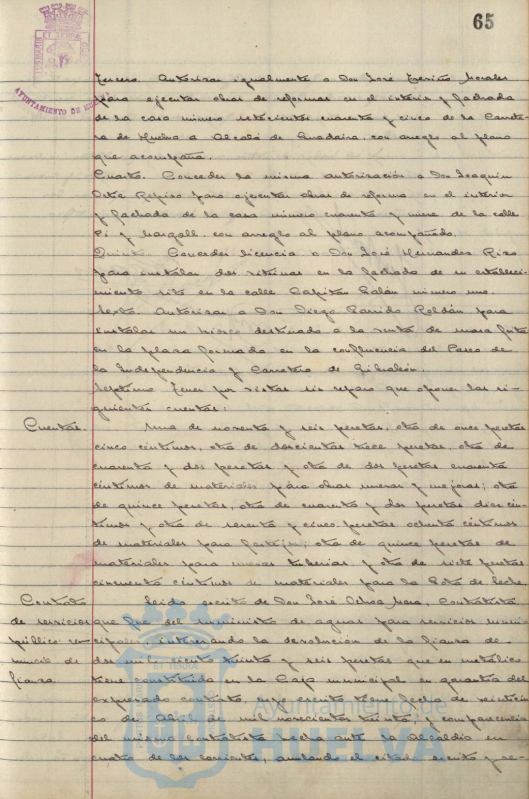 65
AYUNTAMIENTO DE HUELVA
Tercero. Autorizar igualmente a Don José Treviño Morales
para ejecutar obras de reformas en el interior y fachada
de la casa número setecientos cuarenta y cinco de la Carrete-
ra de Huelva a Alcalá de Guadaira, con arreglo al plano
que acompaña.
Cuarto. Conceder la misma autorización a Don Joaquin
para ejecutar obras de reforma en el interior
y fachada de la casa número cuarenta y nueve de la calle
Pi y Margall, con arreglo al plano acompañado.
Quinto. Conceder licencia a Don José Hernandez Rizo
para instalar dos vitrinas en la fachada de su estableci-
miento sito en la calle Capitan Galán número uno.
Sexto. Autorizar a Don Diego Garrido Roldán para
instalar un kiosco destinado a la venta de
en la plaza formada en la confluencia del Paseo de
la Independencia y Carretera de Gibraleón.
Septimo. Tener por vistas sin reparo que oponer las si-
guientes cuentas:
Cuentas. Una de noventa y seis pesetas, otra de once pesetas
cinco centimos, otra de doscientas trece pesetas, otra de
cuarenta y dos pesetas y otra de dos pesetas cuarenta
centimos de materiales para obras nuevas y mejoras; otra
de quince pesetas, otra de cuarenta y dos pesetas diez cén-
timos y otra de sesenta y cinco pesetas ochenta céntimos
de materiales para festejos; otra de quince pesetas de
materiales para nuevas tuberias y otra de siete pesetas
cincuenta céntimos de materiales para la Gota de leche.
Contrato Leido escrito de Don José Ochoa Mora, Contratista
de servicios que fue del suministro de aguas para servicios muni-
público re- cipales, interesando la devolución de la fianza de
nuncia de dos mil ciento treinta y seis pesetas que en metálico
fianza tiene constituida en la Caja municipal en garantía del
expresado contrato, cuyo escrito tiene fecha de veintiein-
co de Abril de mil novecientos treinta, y comparecencia
del mismo contratista hecha ante la Alcaldía en
cuatro de los corrientes, anulando el citado escrito y
Ayuntamiento de
HUELVA